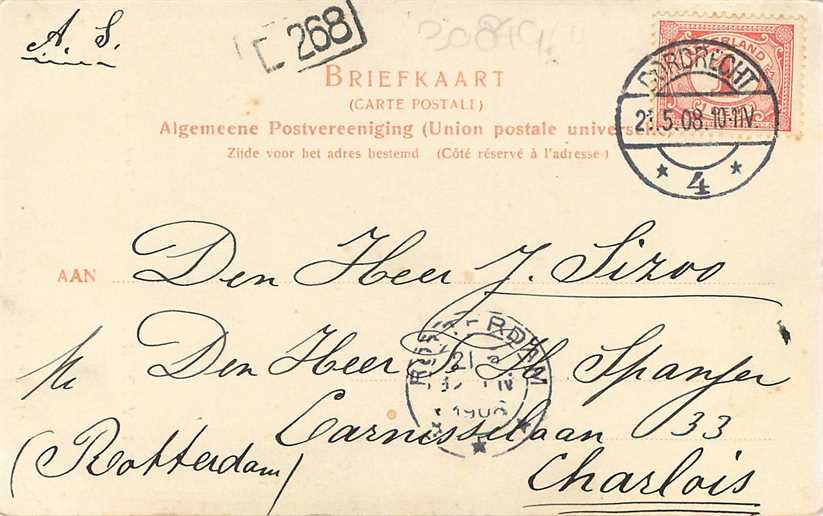 A. S.
268
BRIEFKAART
(CARTE POSTALE)
Algemeene Postvereeniging (Union postale universelle)
Zijde voor het adres bestemd (Côté réservé à l'adresse)
DORDRECHT
21.5.08. 10-11V.
4
AAN Den Heer J. Sizoo
Den Heer Spanjer
Carnisselaan 33
(Rotterdam) Charlois
ROTTERDAM
21
1908